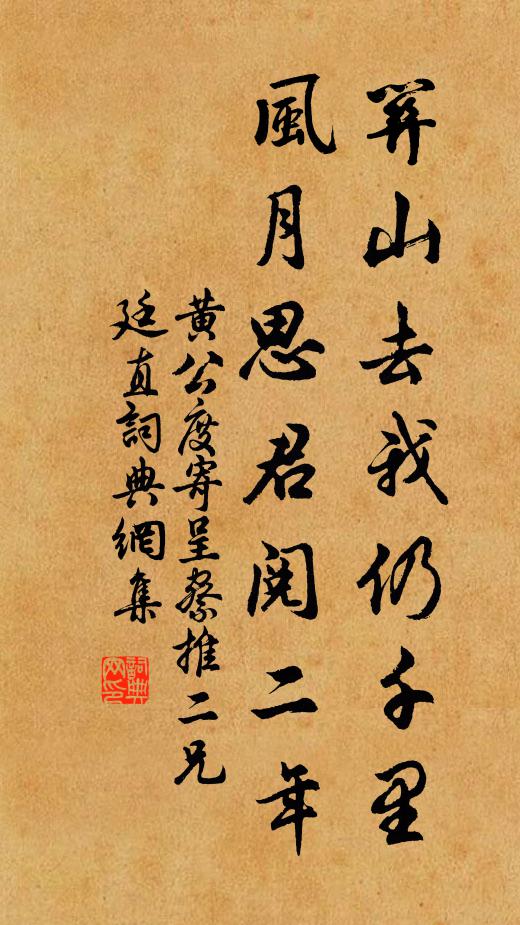 關山去我仍千里
風月思君閱二年
黃公度寄呈蔡推二兄
廷直詞典網集
詞典網印